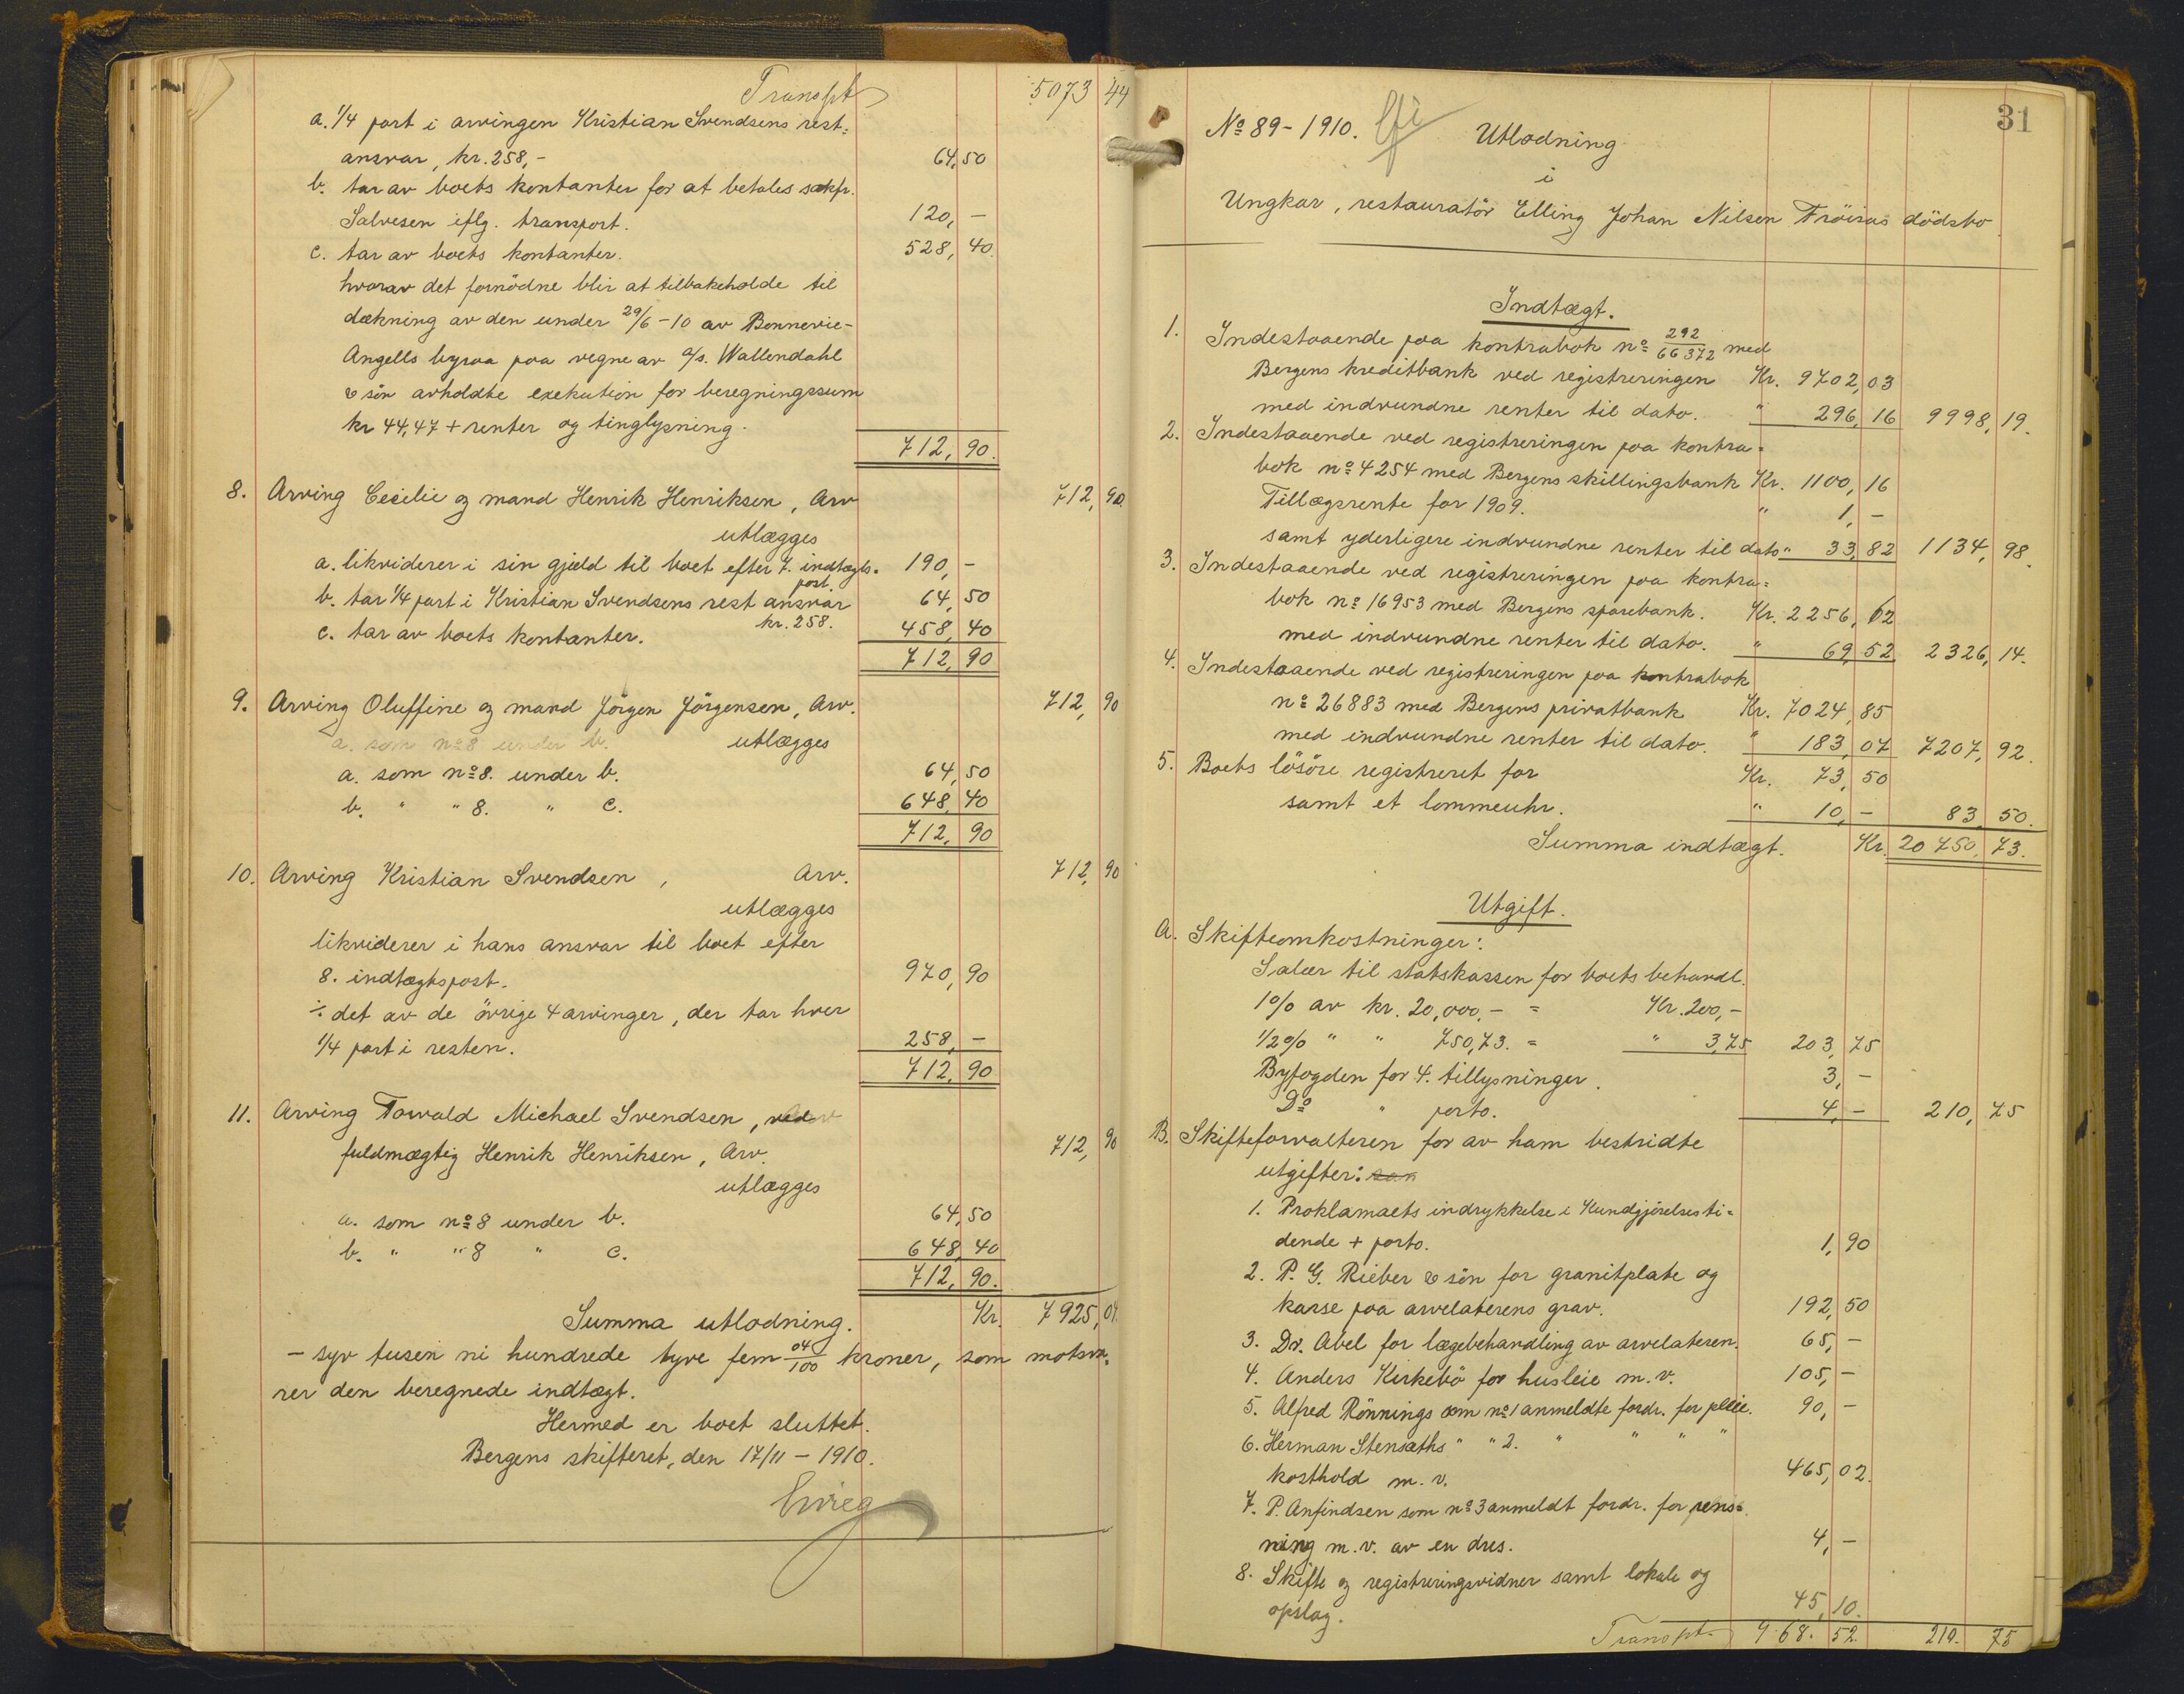 Transpt 5073 44
a. 1/4 part i arvingen Kristian Svendsens rest=
ansvar, kr. 258,- 64,50
b. tar av boets kontanter for at betales sakfr.
Salvesen iflg. transport. 120,-
c. tar av boets kontanter. 528,40.
hvorav det fornödne blir at tilbakeholde til
dækning av den under 29/6-10 av Bonnevie-
Angells byraa paa vegne av a/s. Wallendahl
& sön avholdte exekution for beregningssum
kr 44,47 + renter og tinglysning.
712,90.
8. Arving Cecilie og mand Henrik Henriksen, Arv 712,90.
utlægges
a. likviderer i sin gjæld til boet efter 7. indtægts= 190,-
post
b. tar 1/4 part i Kristian Svendsens rest ansvar 64,50
kr. 258.
c. tar av boets kontanter. 458,40
712,90
9. Arving Oluffine og mand Jörgen Jörgensen, Arv. 712,90
a. som no 8 under b. utlægges
a. som no 8. under b. 64,50
b. " " 8. " c. 648,40
712,90
10. Arving Kristian Svendsen, Arv. 712,90
utlægges
likviderer i hans ansvar til boet efter
8. indtægtspost. 970,90
÷ det av de övrige 4 arvinger, der tar hver
1/4 part i resten. 258,-
712,90
11. Arving Torvald Michael Svendsen, ved
fuldmægtig Henrik Henriksen, Arv. 712,90
utlægges
a. som no 8 under b. 64,50
b. " " 8 " c. 648,40
712,90.
Summa utlodning. Kr. 7925,04.
- syv tusen ni hundrede tyve fem 04/100 kroner, som motsva=
rer den beregnede indtægt.
Hermed er boet sluttet.
Bergens skifteret, den 17/11 - 1910.
31
No 89 - 1910.
Utlodning
i
Ungkar, restauratör Elling Johan Nilsen Fröisas dödsbo
Indtægt.
1. Indestaaende paa kontrabok no 292/66372 med
Bergens kreditbank ved registreringen Kr. 9702,03
med indvundne renter til dato. " 296,16 9998,19.
2. Indestaaende ved registreringen paa kontra=
bok no 4254 med Bergens skillingsbank Kr. 1100,16
Tillægsrente for 1909. " 1,-
samt yderligere indvundne renter til dato " 33,82 1134,98.
3. Indestaaende ved registreringen paa kontra=
bok no 16953 med Bergens sparebank. Kr. 2256,62
med indvundne renter til dato. " 69,52 2326,14.
4. Indestaaende ved registreringen paa kontrabok
no 26883 med Bergens privatbank Kr. 7024,85
med indvundne renter til dato. " 183,07 7207,92.
5. Boets lösöre registreret for Kr. 73,50
samt et lommeuhr. " 10,- 83,50.
Summa indtægt. Kr. 20750,73.
Utgift.
A. Skifteomkostninger:
Salær til statskassen for boets behandl.
1% av kr. 20,000.- = Kr. 200,-
1/2% " " 750,73. = " 3,75 203,75
Byfogden for 4. tillysninger. 3,-
Do " porto. 4,- 210,75
B. Skifteforvalteren for av ham bestridte
utgifter:
1. Proklamaets indrykkelse i Kundgjörelsesti=
dende + porto. 1,90
2. P. G. Rieber & sön for granitplate og
karse paa arvelaterens grav. 192,50
3. Dr. Abel for lægebehandling av arvelateren. 65,-
4. Anders Kirkebö for husleie m. v. 105,-
5. Alfred Rönnings som no 1 anmeldte fordr. for pleie. 90,-
6. Herman Stensæths " " 2. " " " "
kosthold m. v. 465,02.
7. P. Anfindsen som no 3 anmeldt fordr. for rens=
ning m. v. av en dres. 4,-
8. Skifte og registreringsvidner samt lokale og
opslag. 45,10.
Transpt. 968.52. 210.75